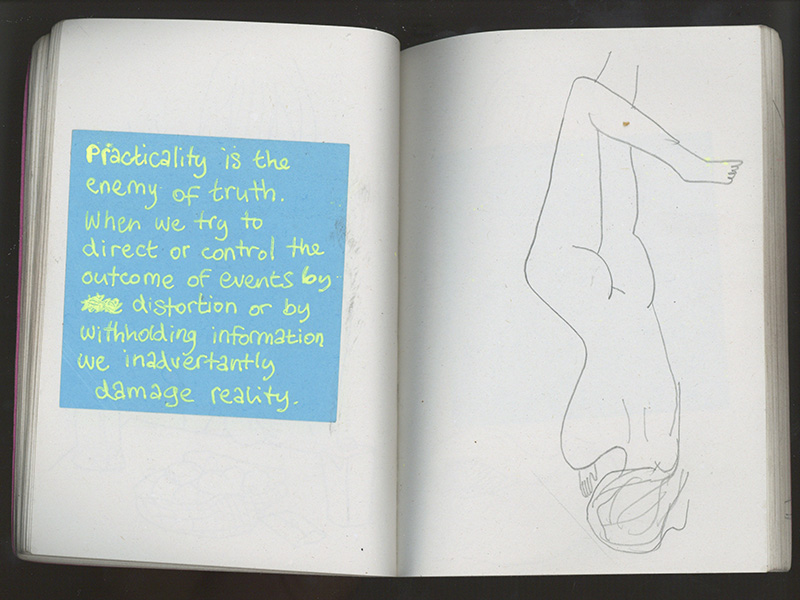 Practicality is the
enemy of truth.
When we try to
direct or control the
outcome of events by
distortion or by
withholding information
we inadvertantly
damage reality.